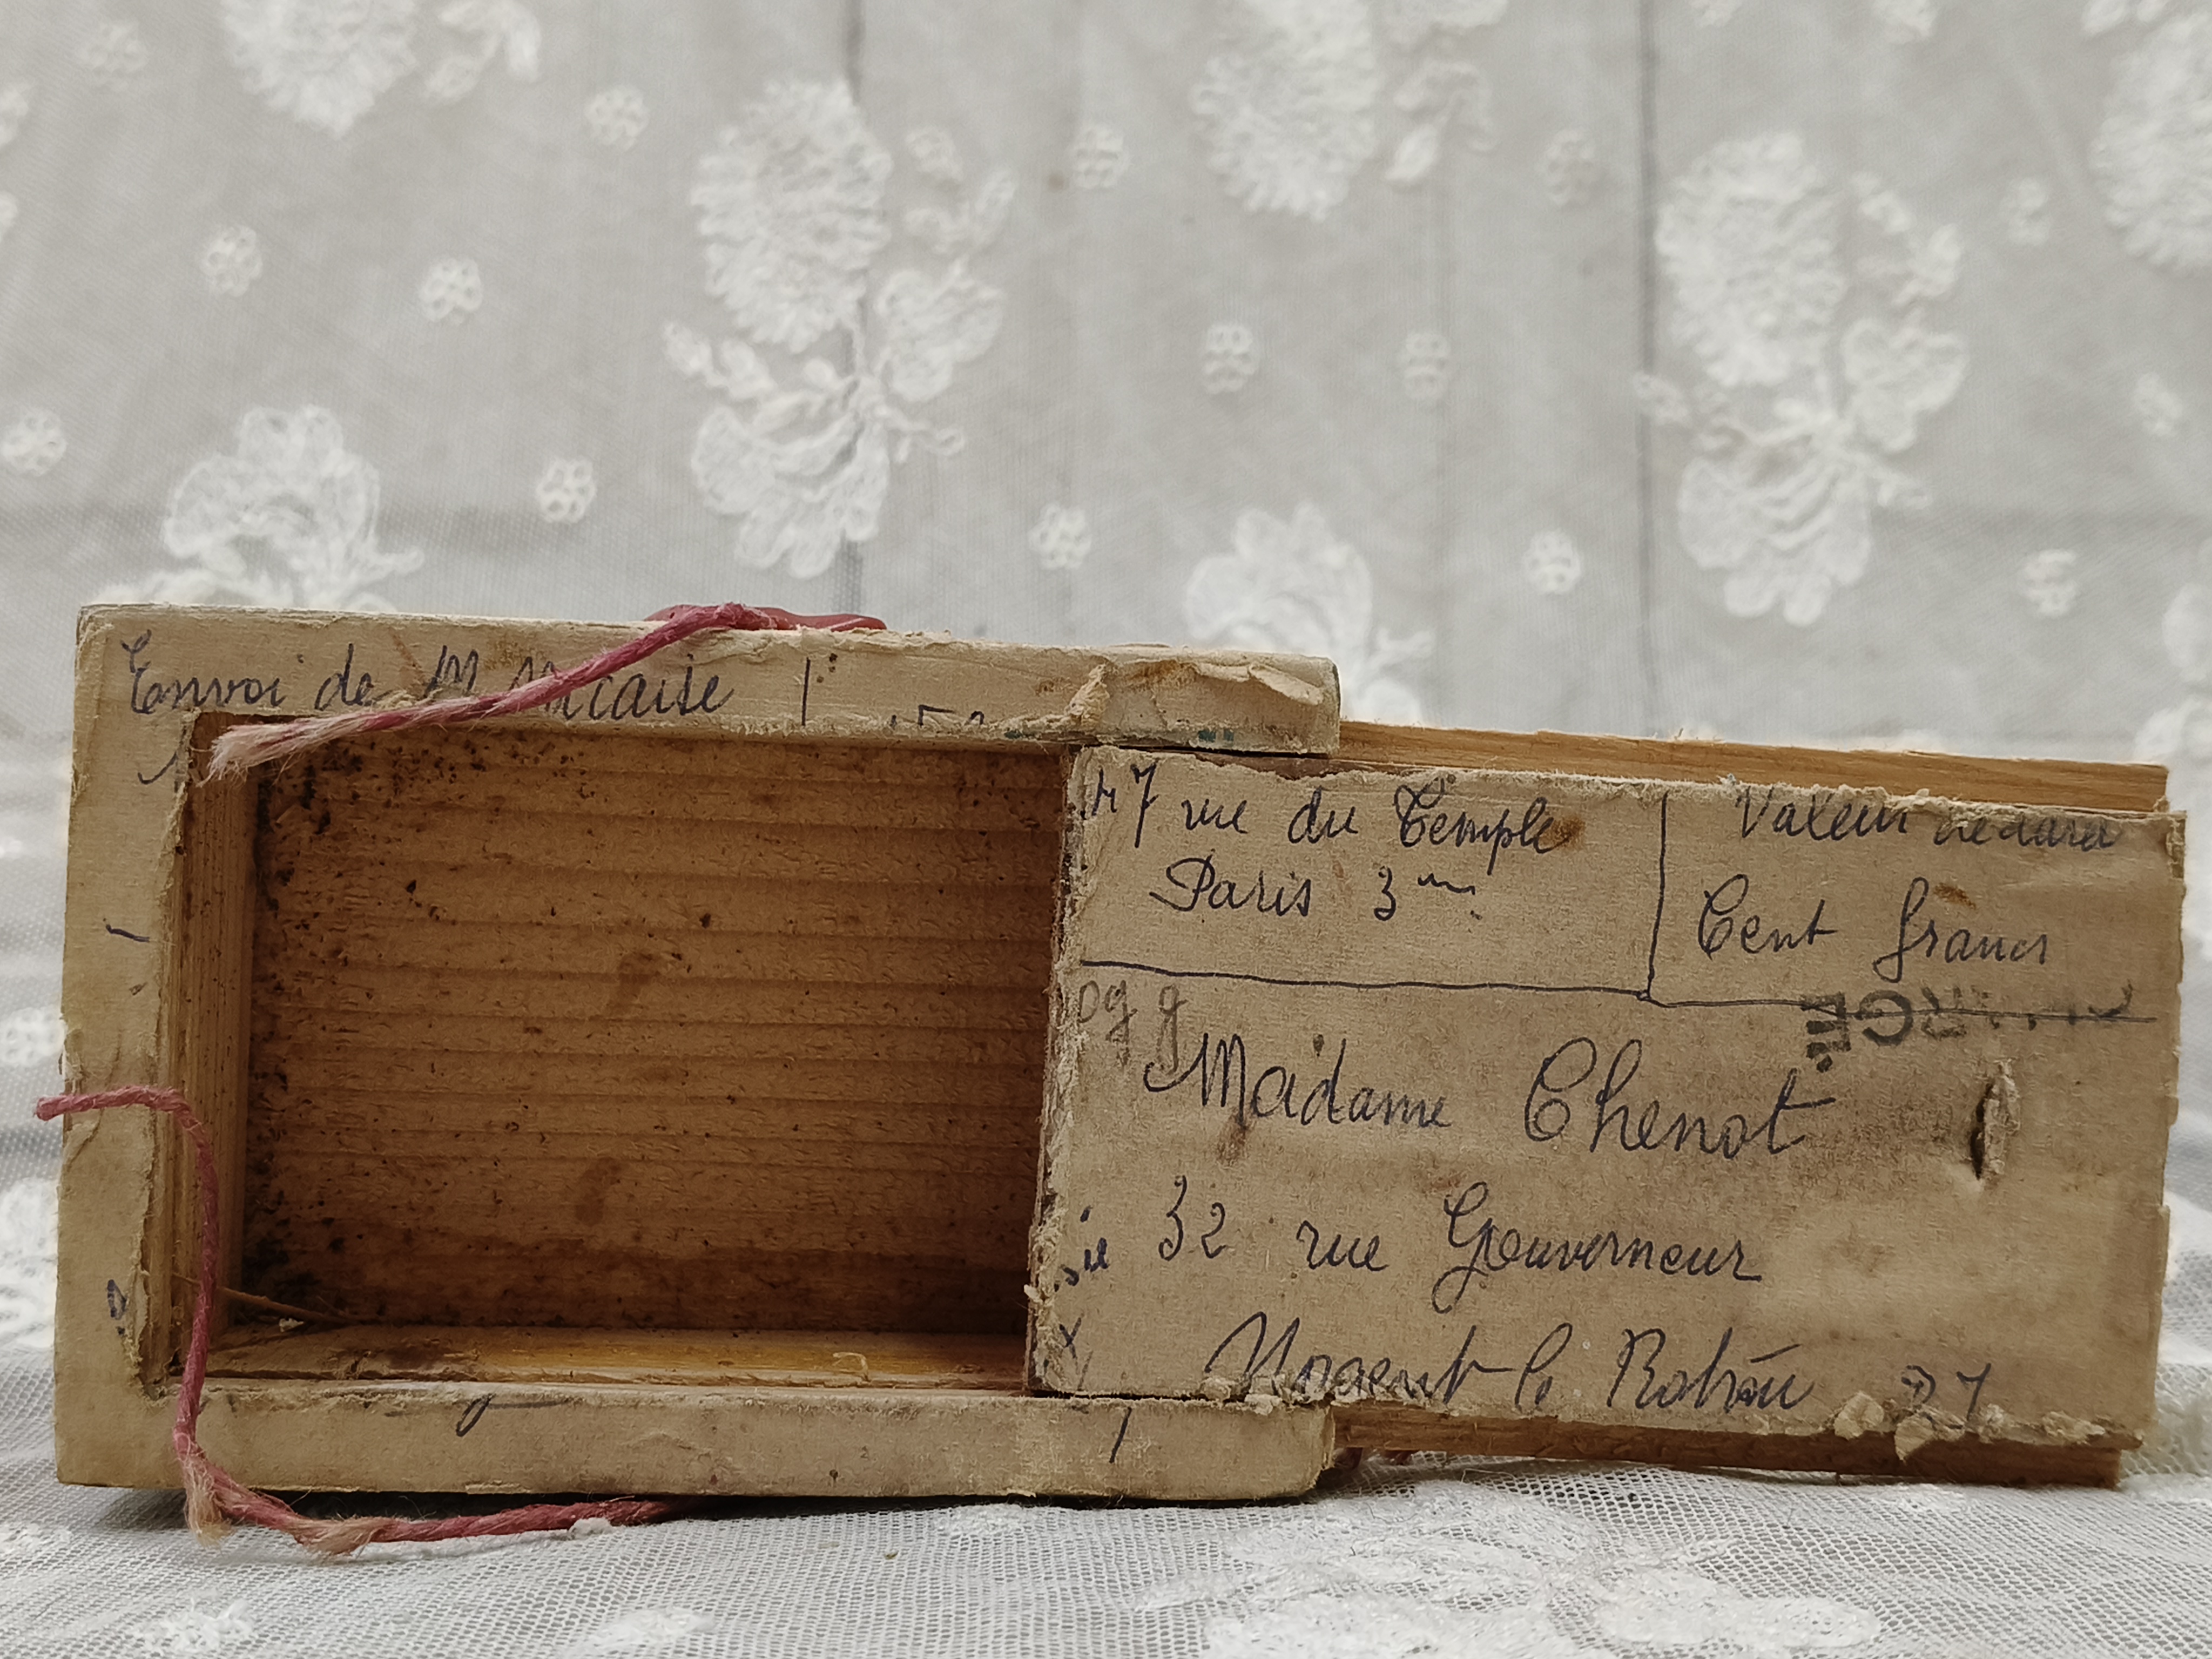 Envoi de M Nicaise
47 rue du Temple
Paris 3me
Valeur déclarée
Cent francs
Madame Chenot
32 rue Gouverneur
Nogent le Rotrou